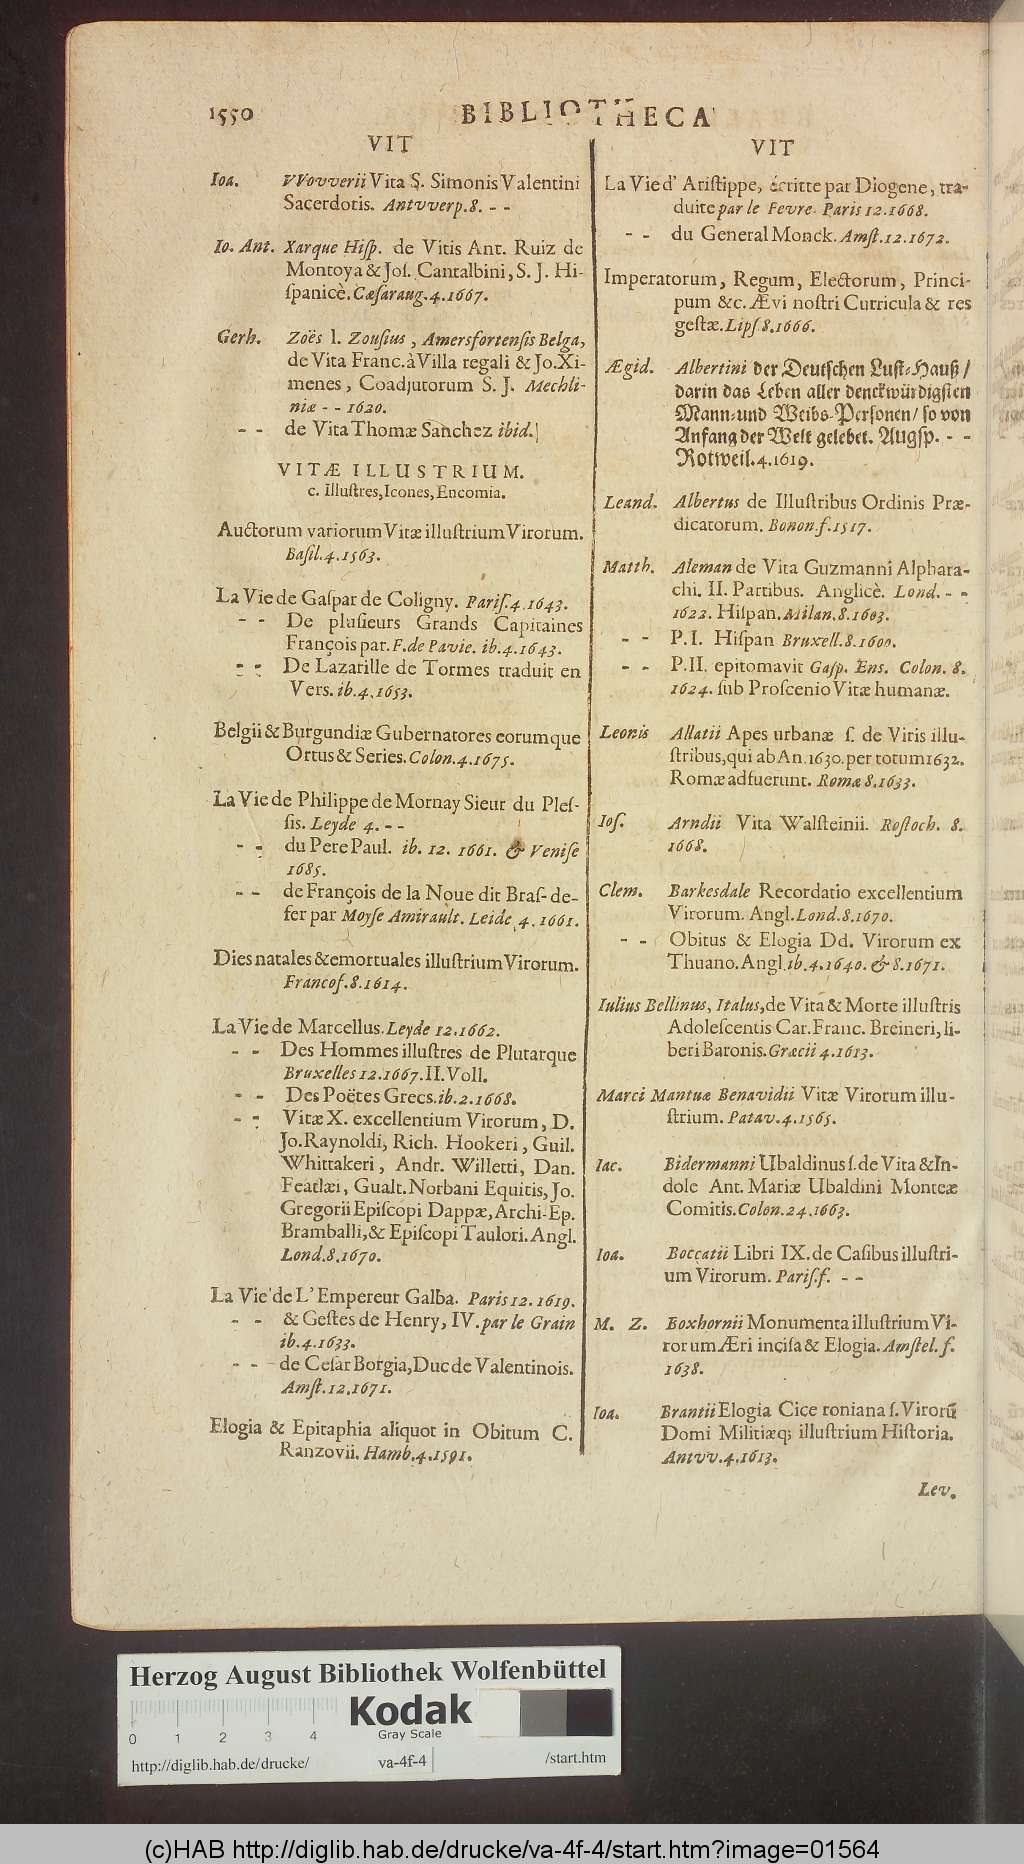 1550
BIBLIOTHECA
VIT
Ioa. VVovverii Vita S. Simonis Valentini
Sacerdotis. Antvverp.8. - -
Io. Ant. Xarque Hiſp. de Vitis Ant. Ruiz de
Montoya & Joſ. Cantalbini, S. J. Hi-
ſpanicè. Cæſaraug.4.1667.
Gerh. Zoës l. Zouſius, Amersfortenſis Belga,
de Vita Franc. à Villa regali & Jo. Xi-
menes, Coadjutorum S. J. Mechli-
niæ - - 1620.
- - de Vita Thomæ Sanchez ibid.
VITÆ ILLUSTRIUM.
c. Illuſtres, Icones, Encomia.
Auctorum variorum Vitæ illuſtrium Virorum.
Baſil.4.1563.
La Vie de Gaſpar de Coligny. Pariſ.4.1643.
- - De pluſieurs Grands Capitaines
François par. F. de Pavie. ib.4.1643.
- - De Lazarille de Tormes traduit en
Vers. ib.4.1653.
Belgii & Burgundiæ Gubernatores eorumque
Ortus & Series. Colon.4.1675.
La Vie de Philippe de Mornay Sieur du Pleſ-
ſis. Leyde 4. - -
- - du Pere Paul. ib. 12. 1661. & Veniſe
1685.
- - de François de la Noue dit Braſ-de-
fer par Moyſe Amirault. Leide 4. 1661.
Dies natales & emortuales illuſtrium Virorum.
Francof.8.1614.
La Vie de Marcellus. Leyde 12.1662.
- - Des Hommes illuſtres de Plutarque
Bruxelles 12.1667. II. Voll.
- - Des Poëtes Grecs. ib.2.1668.
- - Vitæ X. excellentium Virorum, D.
Jo. Raynoldi, Rich. Hookeri, Guil.
Whittakeri, Andr. Willetti, Dan.
Featlæi, Gualt. Norbani Equitis, Jo.
Gregorii Epiſcopi Dappæ, Archi-Ep.
Bramballi, & Epiſcopi Taulori. Angl.
Lond.8.1670.
La Vie de L'Empereur Galba. Paris 12.1619.
- - & Geſtes de Henry, IV. par le Grain
ib.4.1633.
- - de Ceſar Borgia, Duc de Valentinois.
Amſt.12.1671.
Elogia & Epitaphia aliquot in Obitum C.
Ranzovii. Hamb.4.1591.
VIT
La Vie d'Ariſtippe, écritte par Diogene, tra-
duite par le Fevre. Paris 12.1668.
- - du General Monck. Amſt.12.1672.
Imperatorum, Regum, Electorum, Princi-
pum &c. Ævi noſtri Curricula & res
geſtæ. Lipſ.8.1666.
Ægid. Albertini der Deutſchen Luſt-Hauß/
darin das Leben aller denckwürdigſten
Mann- und Weibs-Perſonen/ ſo von
Anfang der Welt gelebet. Augſp. - -
Rotweil.4.1619.
Leand. Albertus de Illuſtribus Ordinis Præ-
dicatorum. Bonon.f.1517.
Matth. Aleman de Vita Guzmanni Alphara-
chi. II. Partibus. Anglicè. Lond. - -
1622. Hiſpan. Milan.8.1603.
- - P. I. Hiſpan Bruxell.8.1600.
- - P. II. epitomavit Gaſp. Ens. Colon. 8.
1624. ſub Proſcenio Vitæ humanæ.
Leonis Allatii Apes urbanæ ſ. de Viris illu-
ſtribus, qui ab An. 1630. per totum 1632.
Romæ adfuerunt. Romæ 8.1633.
Ioſ. Arndii Vita Walſteinii. Roſtoch. 8.
1668.
Clem. Barkesdale Recordatio excellentium
Virorum. Angl. Lond.8.1670.
- - Obitus & Elogia Dd. Virorum ex
Thuano. Angl. ib.4.1640. & 8.1671.
Iulius Bellinus, Italus, de Vita & Morte illuſtris
Adoleſcentis Car. Franc. Breineri, li-
beri Baronis. Græcii 4.1613.
Marci Mantuæ Benavidii Vitæ Virorum illu-
ſtrium. Patav.4.1565.
Iac. Bidermanni Ubaldinus ſ. de Vita & In-
dole Ant. Mariæ Ubaldini Monteæ
Comitis. Colon.24.1663.
Ioa. Boccatii Libri IX. de Caſibus illuſtri-
um Virorum. Pariſ.f. - -
M. Z. Boxhornii Monumenta illuſtrium Vi-
rorum Æri inciſa & Elogia. Amſtel. f.
1638.
Ioa. Brantii Elogia Cice roniana ſ. Virorū
Domi Militiæq; illuſtrium Hiſtoria.
Antvv.4.1613.
Lev.
Herzog August Bibliothek Wolfenbüttel
Kodak
Gray Scale
0 1 2 3 4
http://diglib.hab.de/drucke/ va-4f-4 /start.htm
(c)HAB http://diglib.hab.de/drucke/va-4f-4/start.htm?image=01564